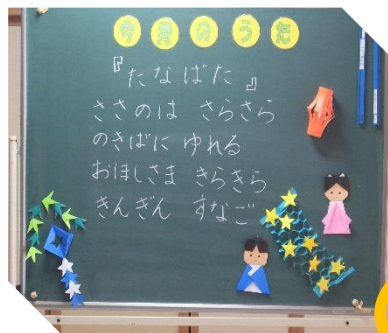 今月のうた
『たなばた』
ささのは さらさら
のきばに ゆれる
おほしさま きらきら
きんぎん すなご